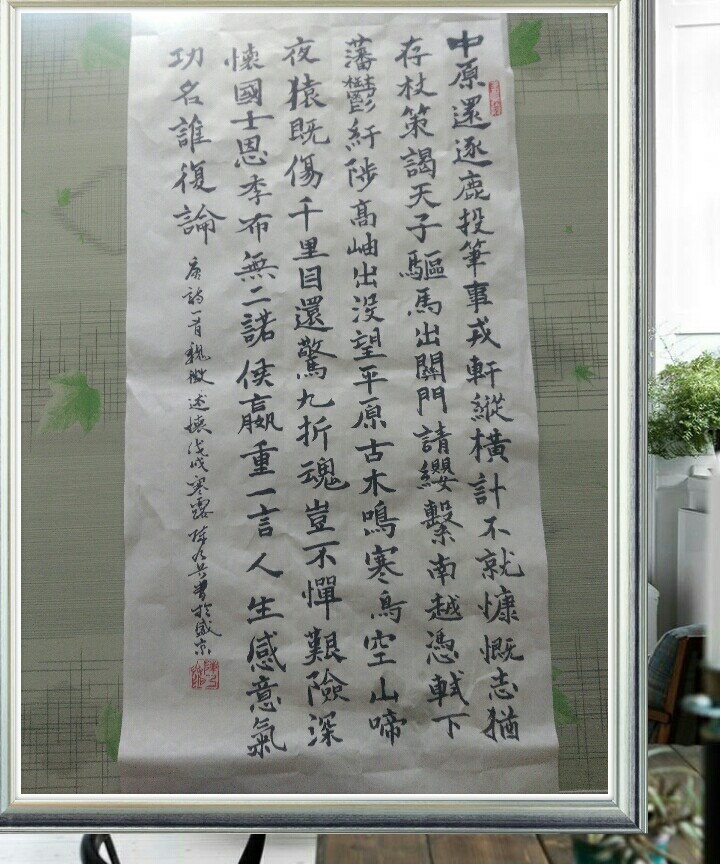 中原還逐鹿投筆事戎軒縱橫計不就慷慨志猶
存杖策謁天子驅馬出關門請纓繫南越憑軾下
藩鬱紆陟高岫出没望平原古木鳴寒鳥空山啼
夜猿既傷千里目還驚九折魂豈不憚艱險深
懷國士恩季布無二諾侯嬴重一言人生感意氣
功名誰復論
唐詩一首魏徵述懷戊戌寒露書於盛京